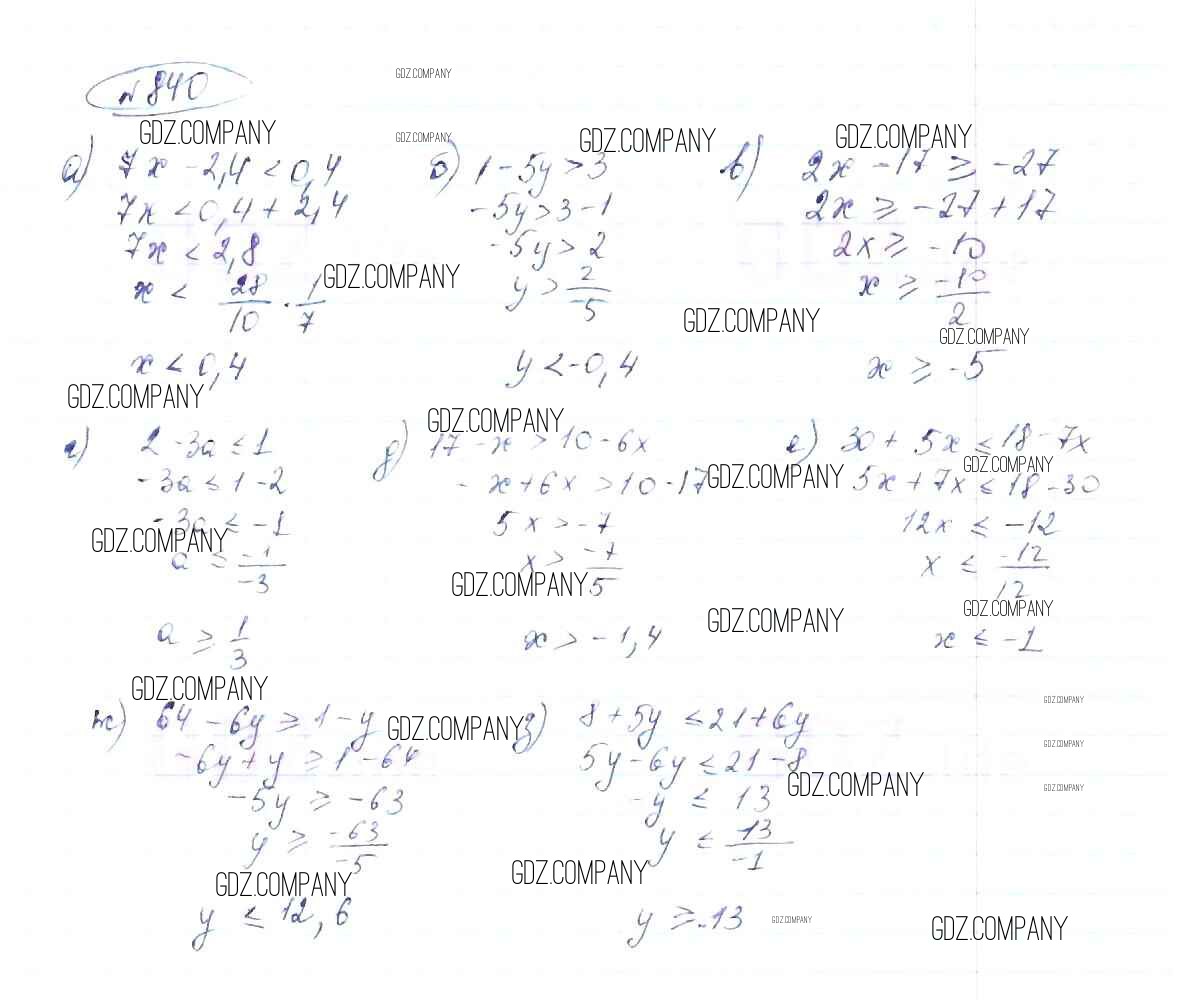 № 840
GDZ.COMPANY
GDZ.COMPANY
GDZ.COMPANY
GDZ.COMPANY
GDZ.COMPANY
а) 7x - 2,4 < 0,4
7x < 0,4 + 2,4
7x < 2,8
x < 28/10 · 1/7
x < 0,4
б) 1 - 5y > 3
-5y > 3 - 1
-5y > 2
y > 2/-5
y < -0,4
в) 2x - 17 ≥ -27
2x ≥ -27 + 17
2x ≥ -10
x ≥ -10/2
x ≥ -5
GDZ.COMPANY
GDZ.COMPANY
GDZ.COMPANY
GDZ.COMPANY
GDZ.COMPANY
г) 2 - 3a ≤ 1
-3a ≤ 1 - 2
-3a ≤ -1
a ≤ -1/-3
a ≥ 1/3
д) 17 - x > 10 - 6x
-x + 6x > 10 - 17
5x > -7
x > -7/5
x > -1,4
е) 30 + 5x ≤ 18 - 7x
5x + 7x ≤ 18 - 30
12x ≤ -12
x ≤ -12/12
x ≤ -1
GDZ.COMPANY
GDZ.COMPANY
GDZ.COMPANY
GDZ.COMPANY
GDZ.COMPANY
GDZ.COMPANY
GDZ.COMPANY
GDZ.COMPANY
ж) 64 - 6y ≥ 1 - y
-6y + y ≥ 1 - 64
-5y ≥ -63
y ≥ -63/-5
y ≤ 12,6
з) 8 + 5y ≤ 21 + 6y
5y - 6y ≤ 21 - 8
-y ≤ 13
y ≤ 13/-1
y ≥ -13
GDZ.COMPANY
GDZ.COMPANY
GDZ.COMPANY
GDZ.COMPANY
GDZ.COMPANY
GDZ.COMPANY
GDZ.COMPANY
GDZ.COMPANY
GDZ.COMPANY